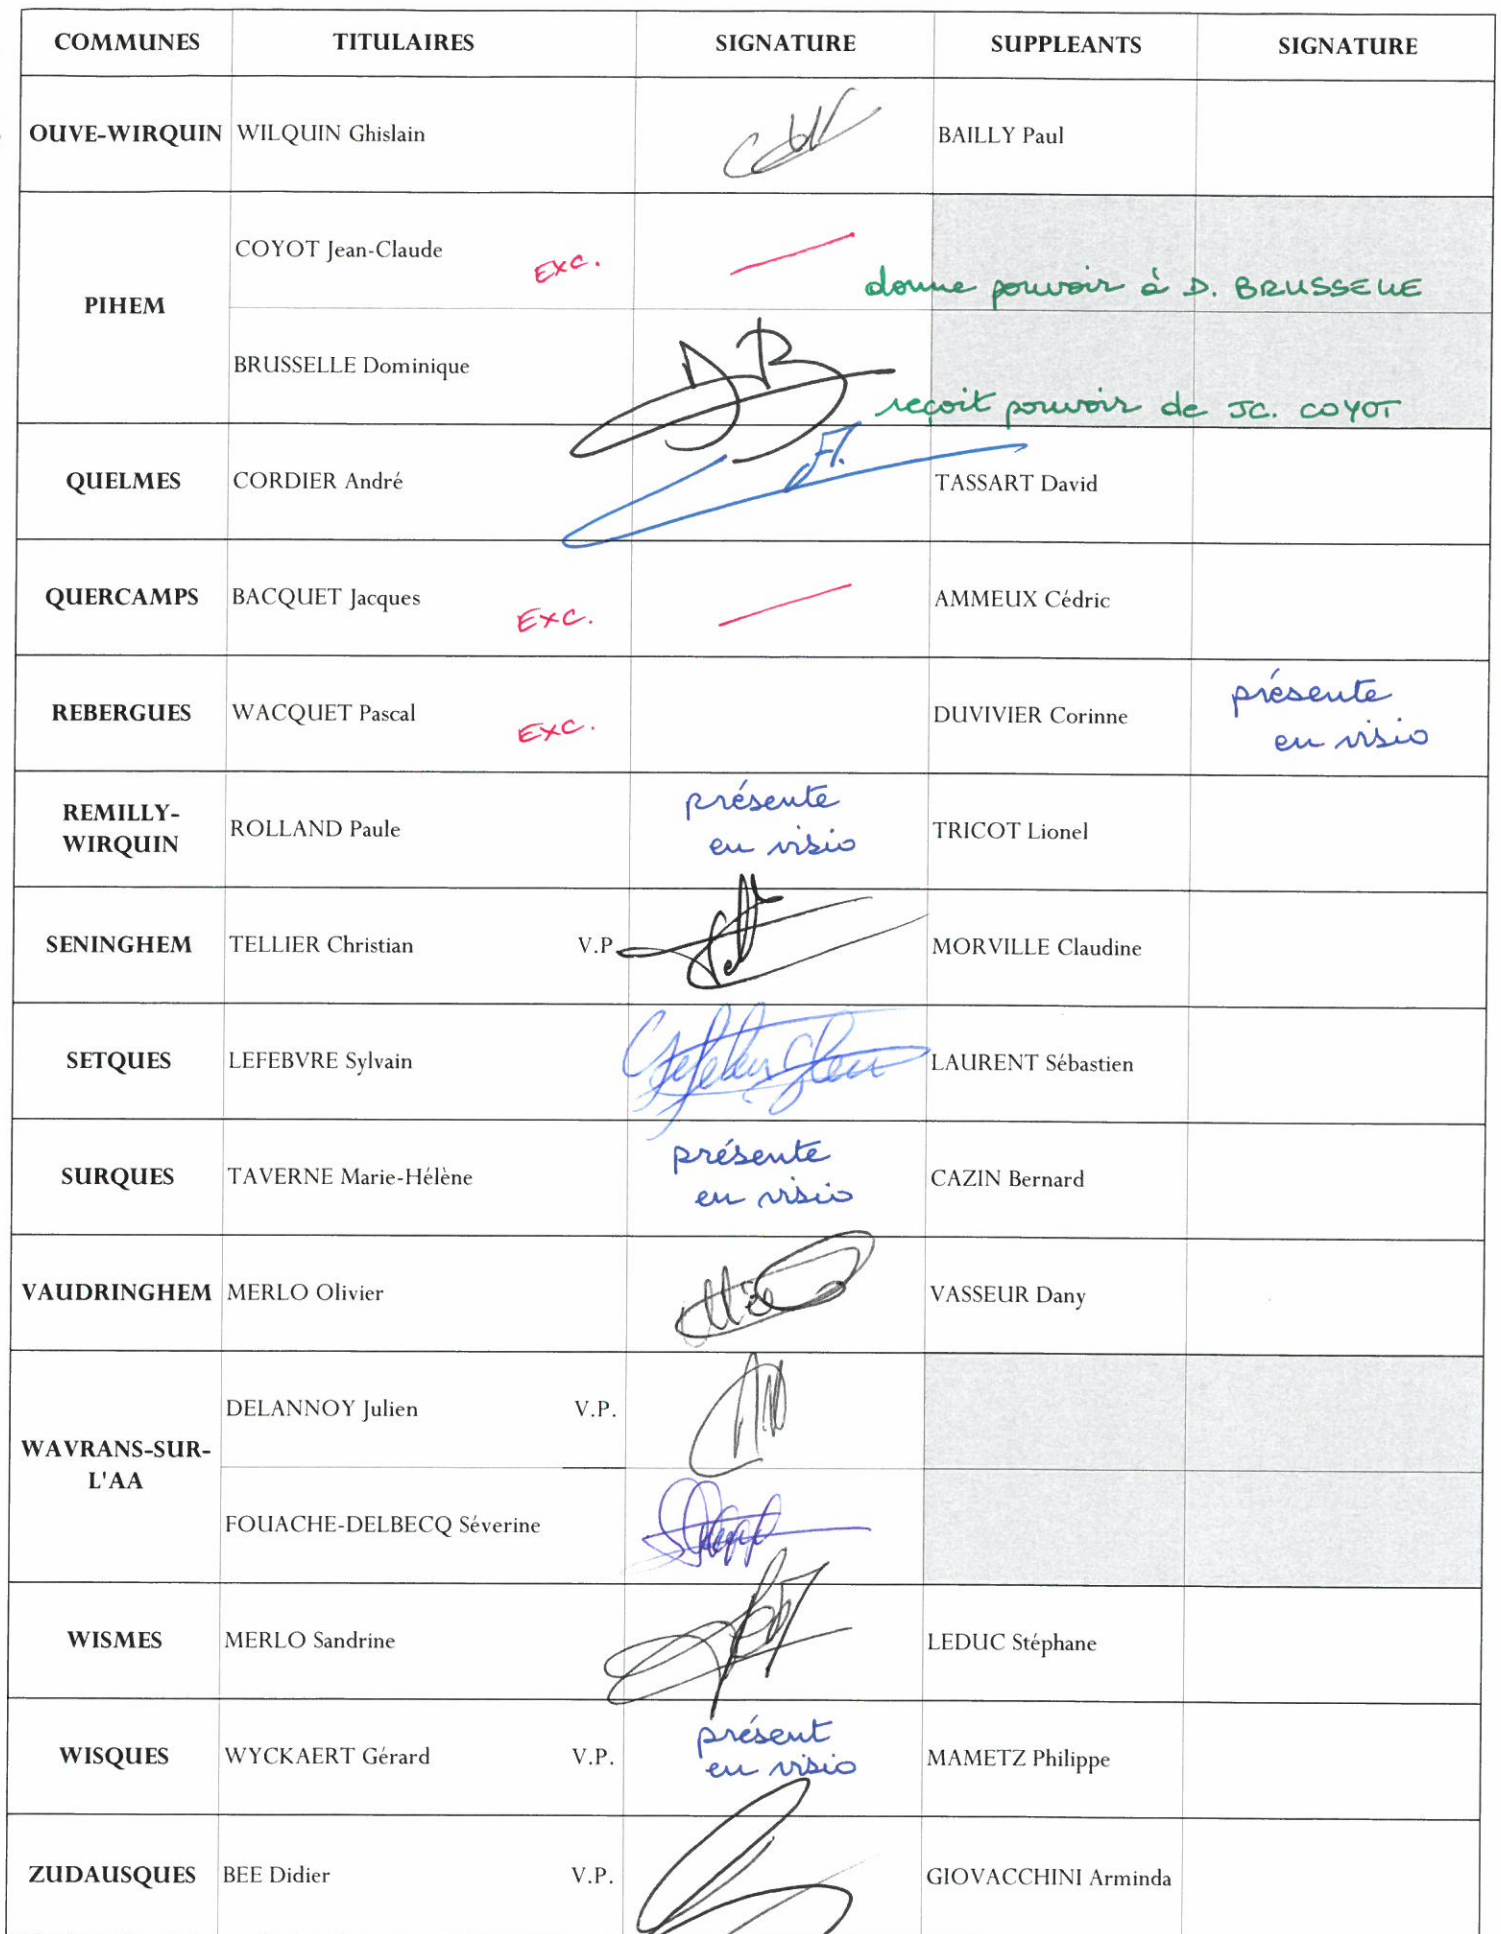 COMMUNES TITULAIRES SIGNATURE SUPPLEANTS SIGNATURE
OUVE-WIRQUIN WILQUIN Ghislain BAILLY Paul
COYOT Jean-Claude Exc.
donne pouvoir à D. BRUSSELLE
PIHEM
BRUSSELLE Dominique DB
reçoit pouvoir de JC. COYOT
QUELMES CORDIER André TASSART David
QUERCAMPS BACQUET Jacques Exc. AMMEUX Cédric
REBERGUES WACQUET Pascal Exc. DUVIVIER Corinne présente
en visio
REMILLY-
WIRQUIN ROLLAND Paule présente
en visio TRICOT Lionel
SENINGHEM TELLIER Christian V.P. MORVILLE Claudine
SETQUES LEFEBVRE Sylvain LAURENT Sébastien
SURQUES TAVERNE Marie-Hélène présente
en visio CAZIN Bernard
VAUDRINGHEM MERLO Olivier VASSEUR Dany
DELANNOY Julien V.P.
WAVRANS-SUR-
L'AA
FOUACHE-DELBECQ Séverine
WISMES MERLO Sandrine LEDUC Stéphane
WISQUES WYCKAERT Gérard V.P. présent
en visio MAMETZ Philippe
ZUDAUSQUES BEE Didier V.P. GIOVACCHINI Arminda